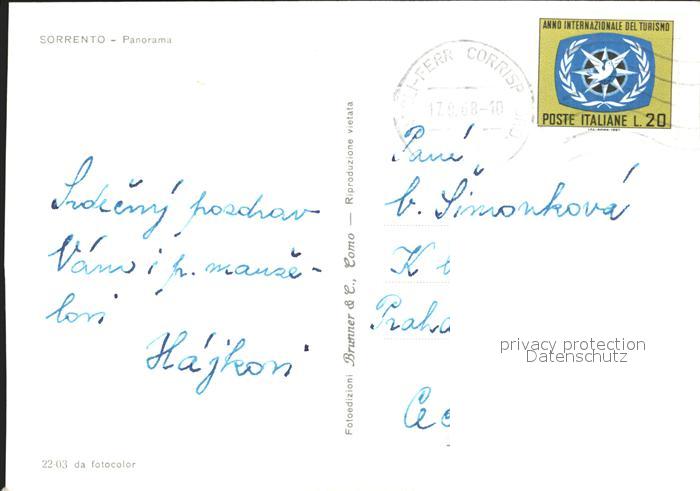 SORRENTO - Panorama
ANNO INTERNAZIONALE DEL TURISMO
POSTE ITALIANE L. 20
FERR CORRISP
17.9.68-10
Srdečný pozdrav
Vám i p. manže-
lovi
Hájkovi
Fotoedizioni Brunner & C., Como — Riproduzione vietata
Paní
Šimonková
K
Praha
privacy protection
Datenschutz
22-03 da fotocolor